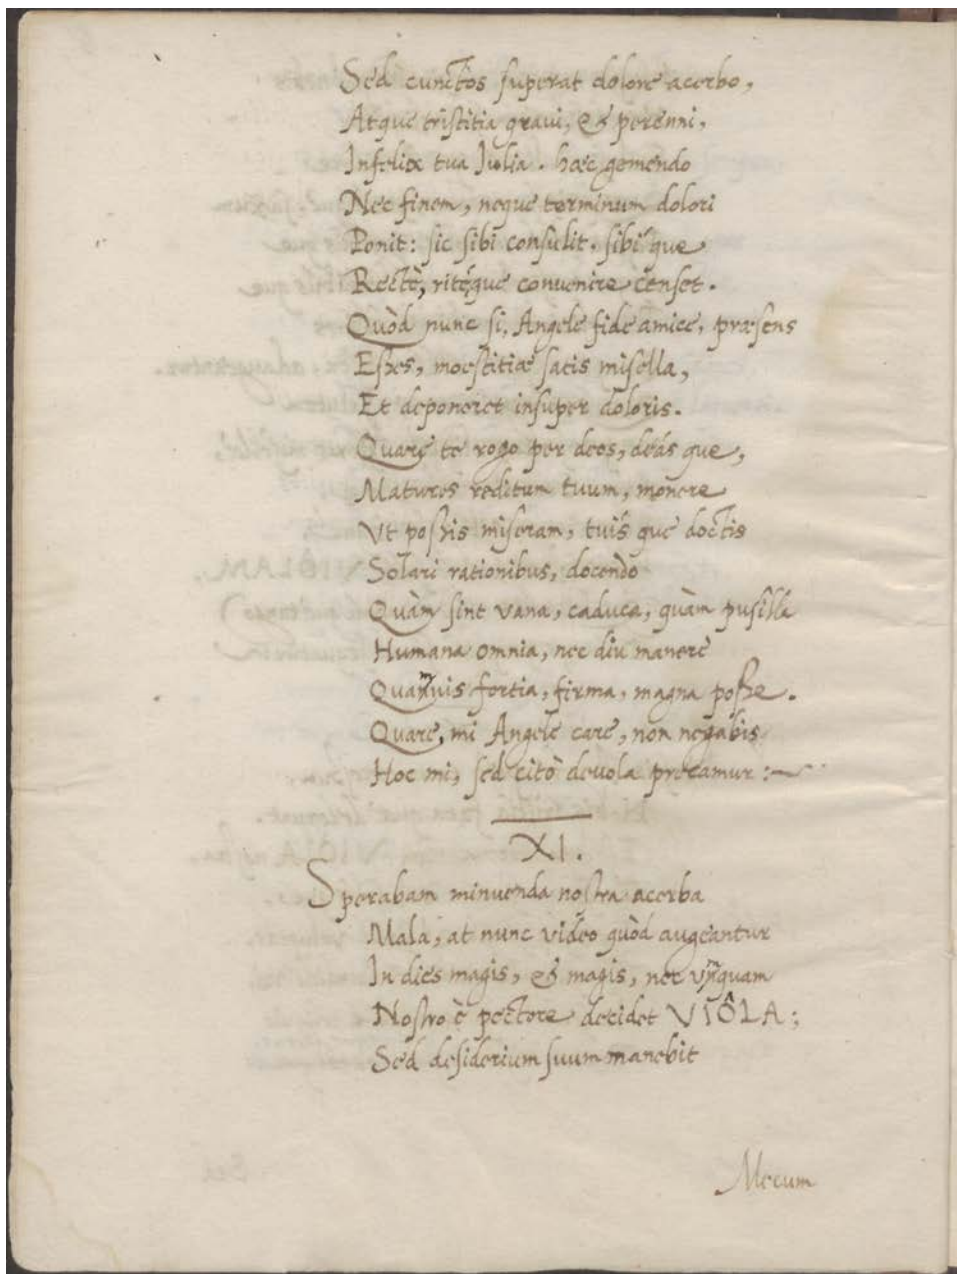 Sed cunctos superat dolore acerbo,
Atque tristitia graui, & perenni,
Infelix tua Iulia. hæc gemendo
Nec finem, neque terminum dolori
Ponit: sic sibi consulit, sibi que
Rectè, ritéque conuenire censet.
Quòd nunc si, Angele fide amice, præsens
Esses, moestitiæ satis misella,
Et deponeret insuper doloris.
Quare te rogo per deos, deás que,
Matures reditum tuum, monere
Vt possis miseram, tuís que doctis
Solari rationibus, docendo
Quàm sint vana, caduca, quàm pusilla
Humana omnia, nec diu manere
Quamuis fortia, firma, magna posse.
Quare, mi Angele care, non negabis
Hoc mi, sed citò deuola precamur:~
XI.
Sperabam minuenda nostra acerba
Mala, at nunc video quòd augeantur
In dies magis, & magis, nec vmquam
Nostro è pectore decidet VIOLA;
Sed desiderium suum manebit
Mecum